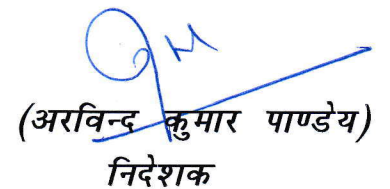 (अरविन्द कुमार पाण्डेय)
निदेशक